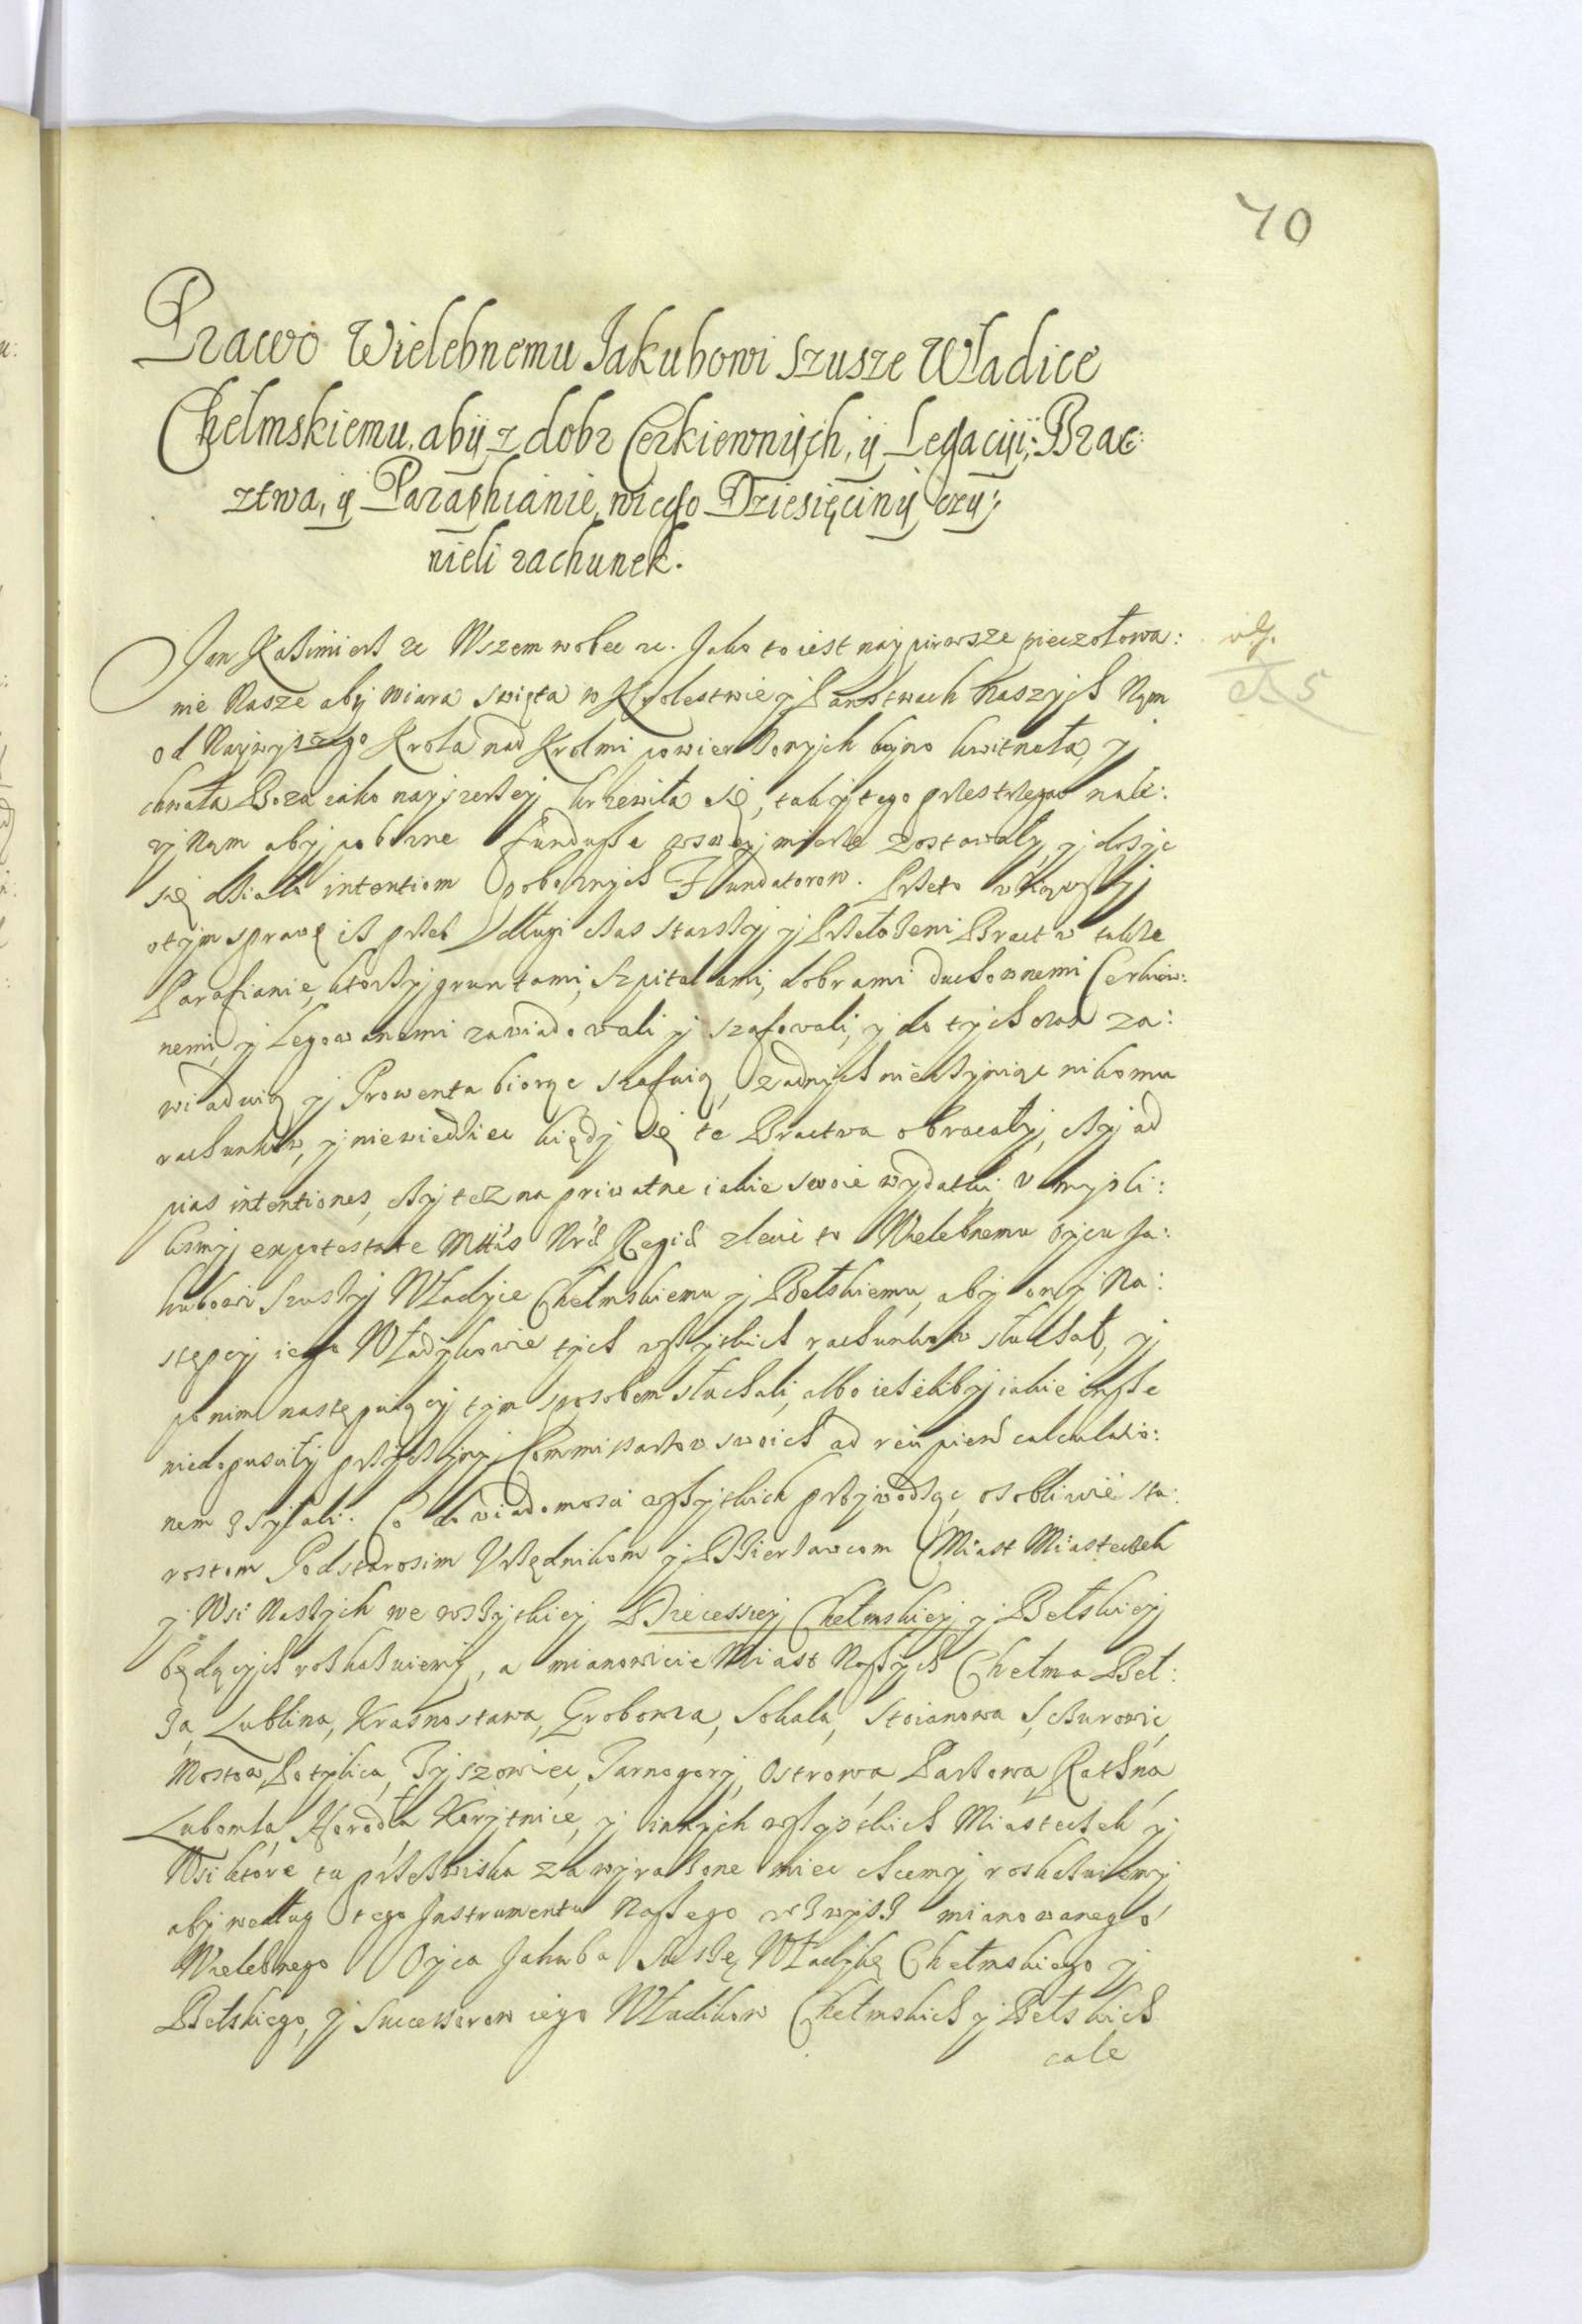 70
Prawo Wielebnemu Jakubowi Szusze Władice
Chełmskiemu, abÿ z dobr Cerkiewnÿch, ÿ Legacÿÿ, Brac:
ztwa, ÿ Paraphianie, wiego Dziesięcinÿ czÿ:
nieli rachunek.
Jan Kazimierz &c Wszem wobec &c. Jako to iest naypierwsze pieczołowa:
nie Nasze aby wiara swięta w Krolestwie y Państwach Naszych Nam
od Naywyszszego Krola nad Krolmi powierzonych buyno kwitneła, y
chwała Boza iako nayszerzey krzewiła się, tak y tego przestrzegac nale:
zy Nam aby pobozne Fundusze wswey mierze zostawały, y dosyc
się działo intentiom poboznych Fundatorow. Przeto
otym sprawę iz przez długi czas starszy y Przełozeni Bractw takze
Parafianie, ktorzy gruntami, Szpitalami, dobrami duchownemi Cerkiew:
nemi, y Legowanemi zawiadowali y szafowali, y do tych czas za:
wiaduią y Prowenta biorąc szafuią, zadnych nieczyniąc nikomu
rachunkow, y niewiedziec kiędy się te Bractwa obracały, czy ad
pias intentiones, czy tez na priwatne iakie swoie wydatki, Vmysli:
lismy ex potestate Mttis Nrae Regia zlecic to Wielebnemu Oycu Ja:
kubowi Szuszy Władyce Chełmskiemu y Bełskiemu, aby on y Na:
stępcy iego Władykowie tych wszytkich rachunkow słuchał, y
po nim następuiący tym sposobem słuchali, albo iezeliby iakie insze
niedopusciły przyczyny, Commissarzow swoich ad calculatio:
nem zsyłali. Co do wiadomosci wszytkich przywodząc, osobliwie sta:
rostom Podstarosim Vrzędnikom y Dzierzawcom Miast Miasteczek
y Wsi Naszych we wszytkiey Dieecessiey Chełmskiey y Bełskiey
będących roskazuiemy, a mianowicie Miast Naszych Chełma Beł:
za, Lublina, Krasnostawa, Grobowca, Sokala, Stoianowa, Sczurowic,
Mostow, Potylica, Tyszowiec, Tarnogory, Ostrowa Parzowa, Ratna,
Lubomla, Horodła Korytnice, y innych wszytkich Miasteczek y
Wsi ktore tu przezwiska za wyrazone miec chcemy roskazuiemy
aby według tego Instrumentu Naszego wzwysz mianowanego
Wielebnego Oyca Jakuba Suszę Władykę Chełmskiego y
Bełskiego, y Successorow iego Władikow Chełmskich y Bełskich
cale